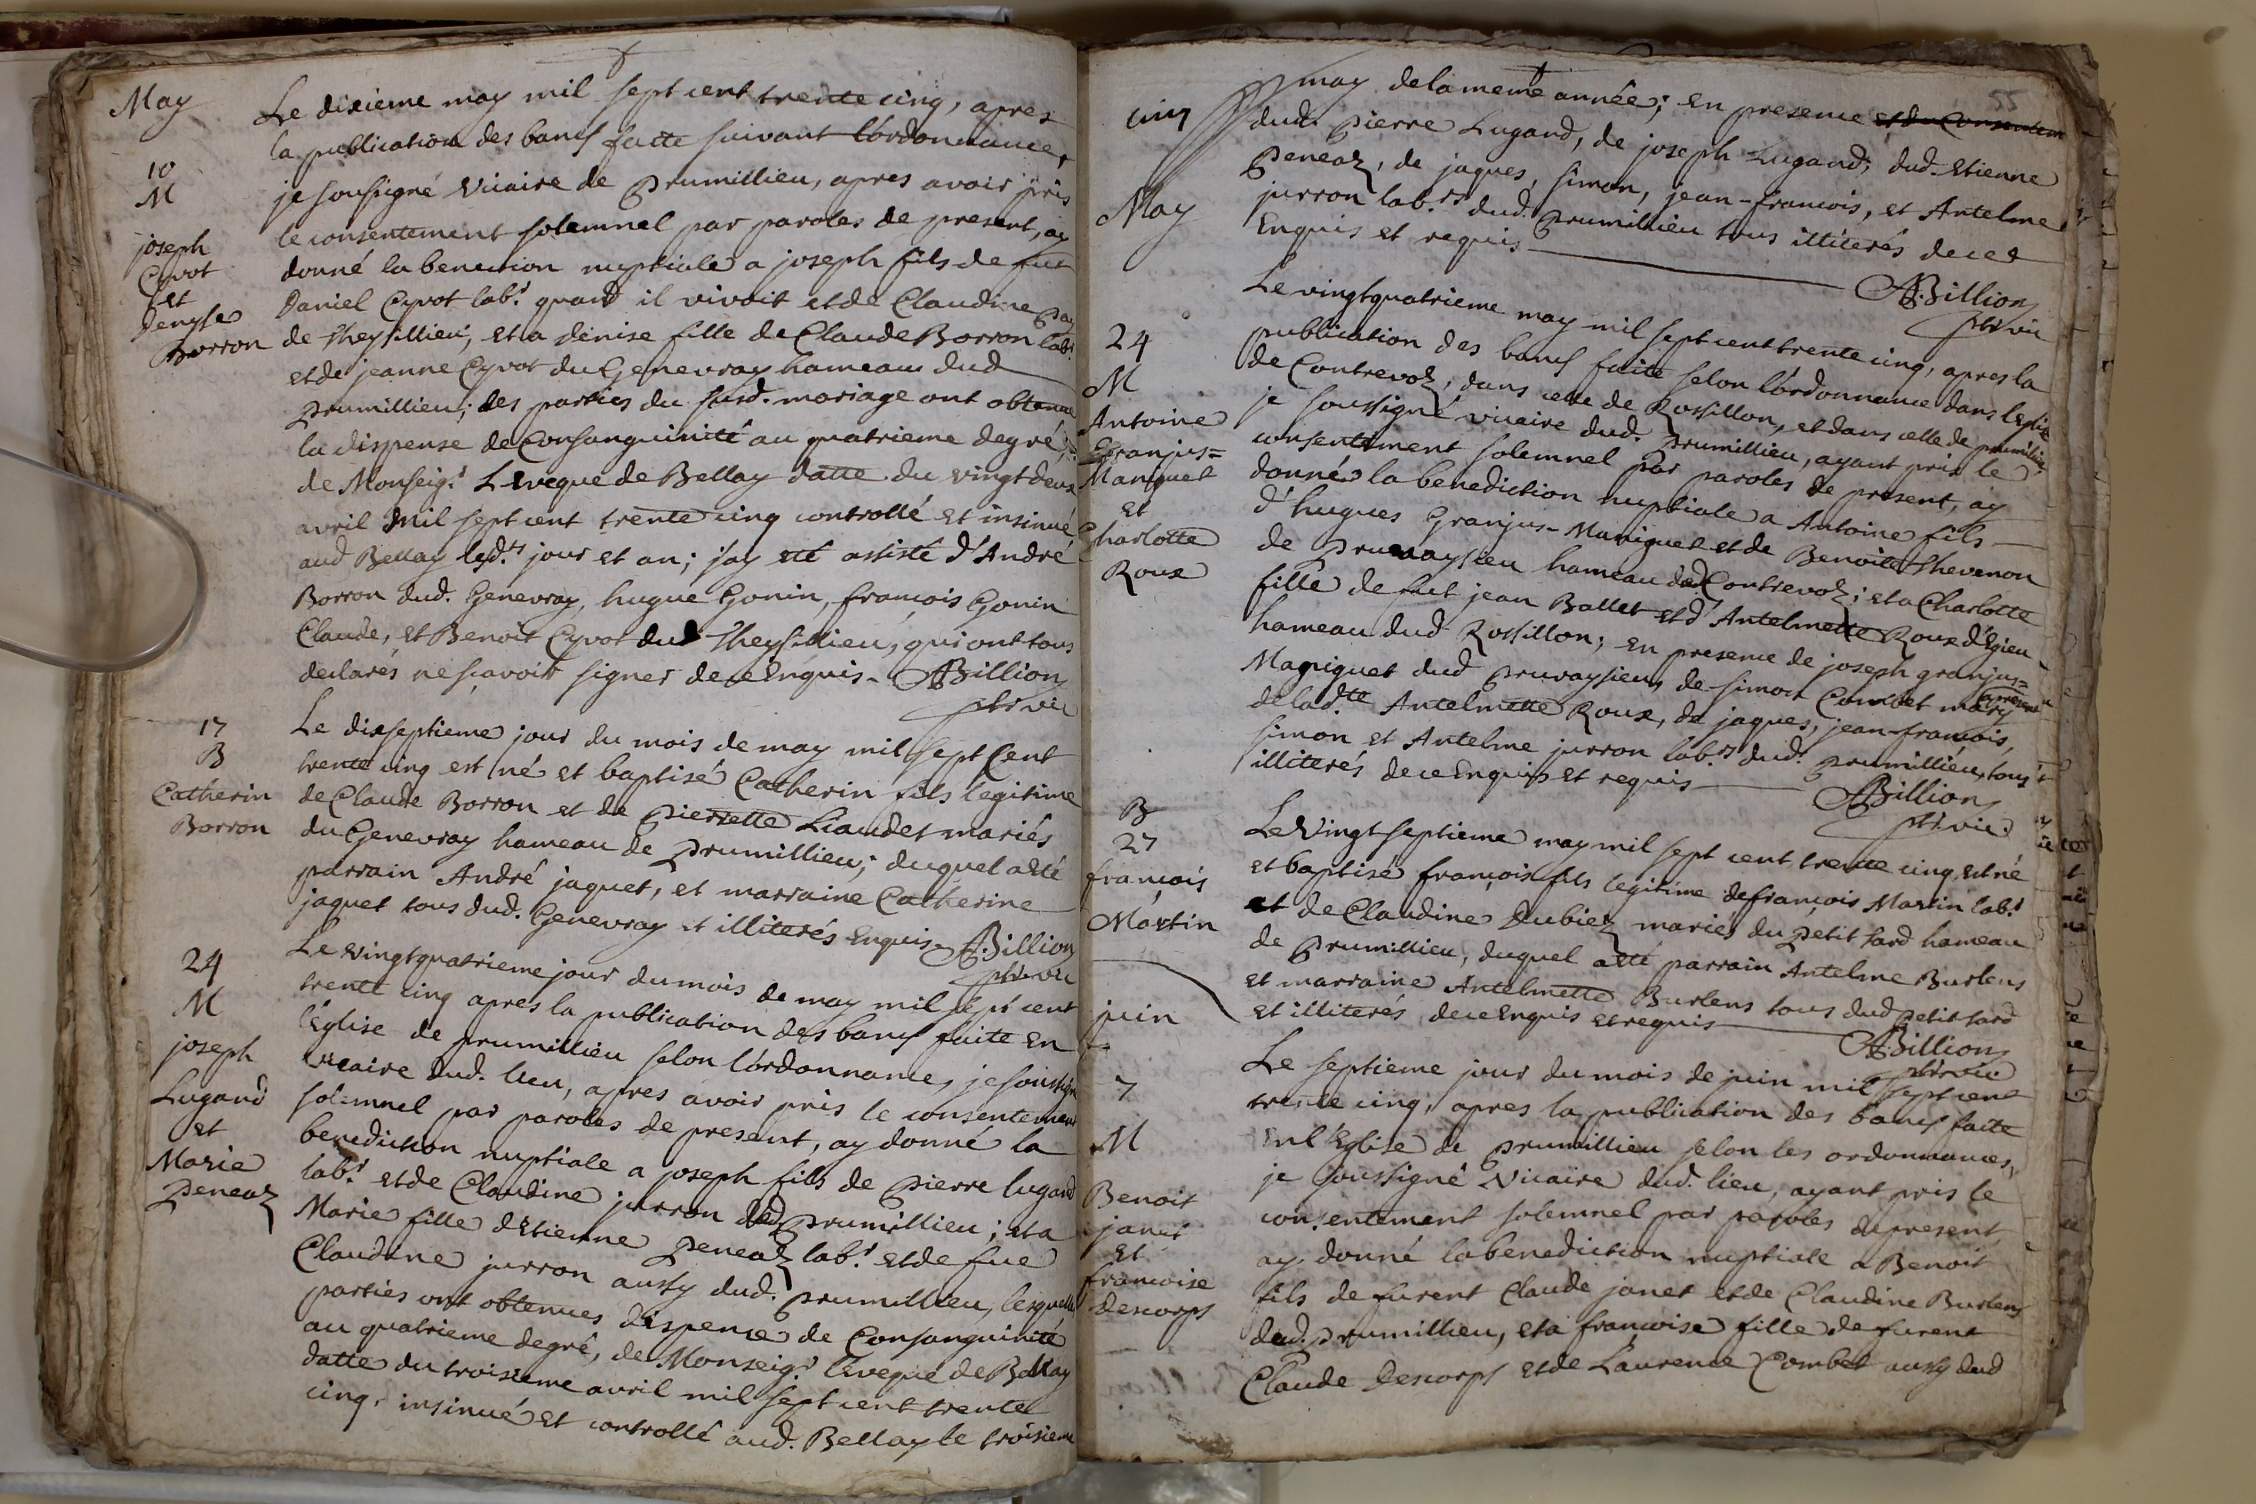 May
10
M
joseph
Cyvot
et
Denyse
Borron
Le dixieme may mil sept cent trente cinq, apres
la publication des bancs faitte suivant l'ordonnance,
je soussigné vicaire de prumillieu, apres avoir pris
le consentement solemnel par paroles de present, ay
donné la benediction nuptiale a joseph fils de fut
Daniel Cyvot lab.r quand il vivoit et de Claudine
de Theysillieu, et a denise fille de Claude Borron lab.r
et de jeanne Cyvot du Genevray hameau dud
prumillieu; les parties du susd. mariage ont obtenu
la dispense de Consanguinité au quatrieme degré,
de Monseig.r L'Eveque de Bellay datte du vingt deux
avril mil sept cent trente cinq controllé et insinué
aud Bellay lesd.ts jour et an; j'ay eté assisté d'André
Borron dud. Genevray, hugue Gonin, francois Gonin
Claude, et Benoit Cyvot dud Theysillieu, qui ont tous
declarés ne sçavoir signer de ce Enquis - ABillion
ptr vic
17
B
Catherin
Borron
Le dixseptieme jour du mois de may mil sept Cent
trente cinq est né et baptisé Catherin fils legitime
de Claude Borron et de Pierrette Liaudet mariés
du Genevray hameau de prumillieu; duquel a eté
parrain André jaquet, et marraine Catherine
jaquet tous dud. Genevray et illiterés Enquis ABillion
ptr vic
24
M
joseph
Lugand
et
Marie
Peneaz
Le vingtquatrieme jour du mois de may mil sept cent
trente cinq apres la publication des bancs faite en
l'Eglise de prumillieu selon l'ordonnance, je soussigné
vicaire dud. lieu, apres avoir pris le consentement
solemnel par paroles de present, ay donné la
benediction nuptiale a joseph fils de Pierre lugand
lab.r et de Claudine jurron dud prumillieu; et a
Marie fille d'Etienne Peneaz lab.r et de fue
Claudine jurron aussy dud. prumillieu, lesquelles
parties ont obtenues dispense de Consanguinité
au quatrieme degré, de Monseig.r l'Eveque de Bellay
datte du troisieme avril mil sept cent trente
cinq, insinué et controllé aud. Bellay le troisieme
55
cinq
May
may de la meme année; en presence et du Consentem
dud. Pierre Lugand, de joseph Lugand, dud. Etienne
Peneaz, de jaques, simon, jean-francois, et Antelme
jurron lab.rs dud. prumillieu tous illiterés de ce
Enquis et requis
ABillion
ptr vic
24
M
Antoine
Granjus=
Maniguet
et
Charlotte
Roux
Le vingtquatrieme may mil sept cent trente cinq, apres la
publication des bancs faite selon l'ordonnance dans l'Eglise
de Contrevoz, dans celle de Rossillon, et dans celle de prumillieu,
je soussigné vicaire dud. prumillieu, ayant pris le
consentement solemnel par paroles de present, ay
donné la benediction nuptiale a Antoine fils
d'hugues Granjus-Maniguet et de Benoite Thevenon
de Pruvaysieu hameau dud Contrevoz; et a Charlotte
fille de fut jean Ballet et d'Antelmette Roux d'Egieu
hameau dud Rossillon; en presence de joseph granjus=
Maniguet dud Pruvaysieu, de simon Combet mary
de lad.te Antelmette Roux, de jaques, jean-francois,
simon et Antelme jurron lab.rs dud. prumillieu, tous
illiterés de ce Enquis et requis
ABillion
ptr vic.
B
27
francois
Martin
Le Vingtseptieme may mil sept cent trente cinq est né
et baptisé francois fils legitime de francois Martin lab.r
et de Claudine Dubiez mariés du petit tard hameau
de Prumillieu, duquel a eté parrain Antelme Burlens
et marraine Antelmette Burlens tous dud petit tard
et illiterés, de ce Enquis et requis
ABillion
ptr vic
juin
7
M
Benoit
janet
et
francoise
Descorps
Le septieme jour du mois de juin mil sept cent
trente cinq, apres la publication des bancs faite
en l'Eglise de Prumillieu selon les ordonnances,
je soussigné Vicaire dud. lieu, ayant pris le
consentement solemnel par paroles de present
ay donné la benediction nuptiale a Benoit
fils de furent Claude janet et de Claudine Burlens
dud. prumillieu, et a francoise fille de furent
Claude Descorps et de Laurence Combet aussy dud